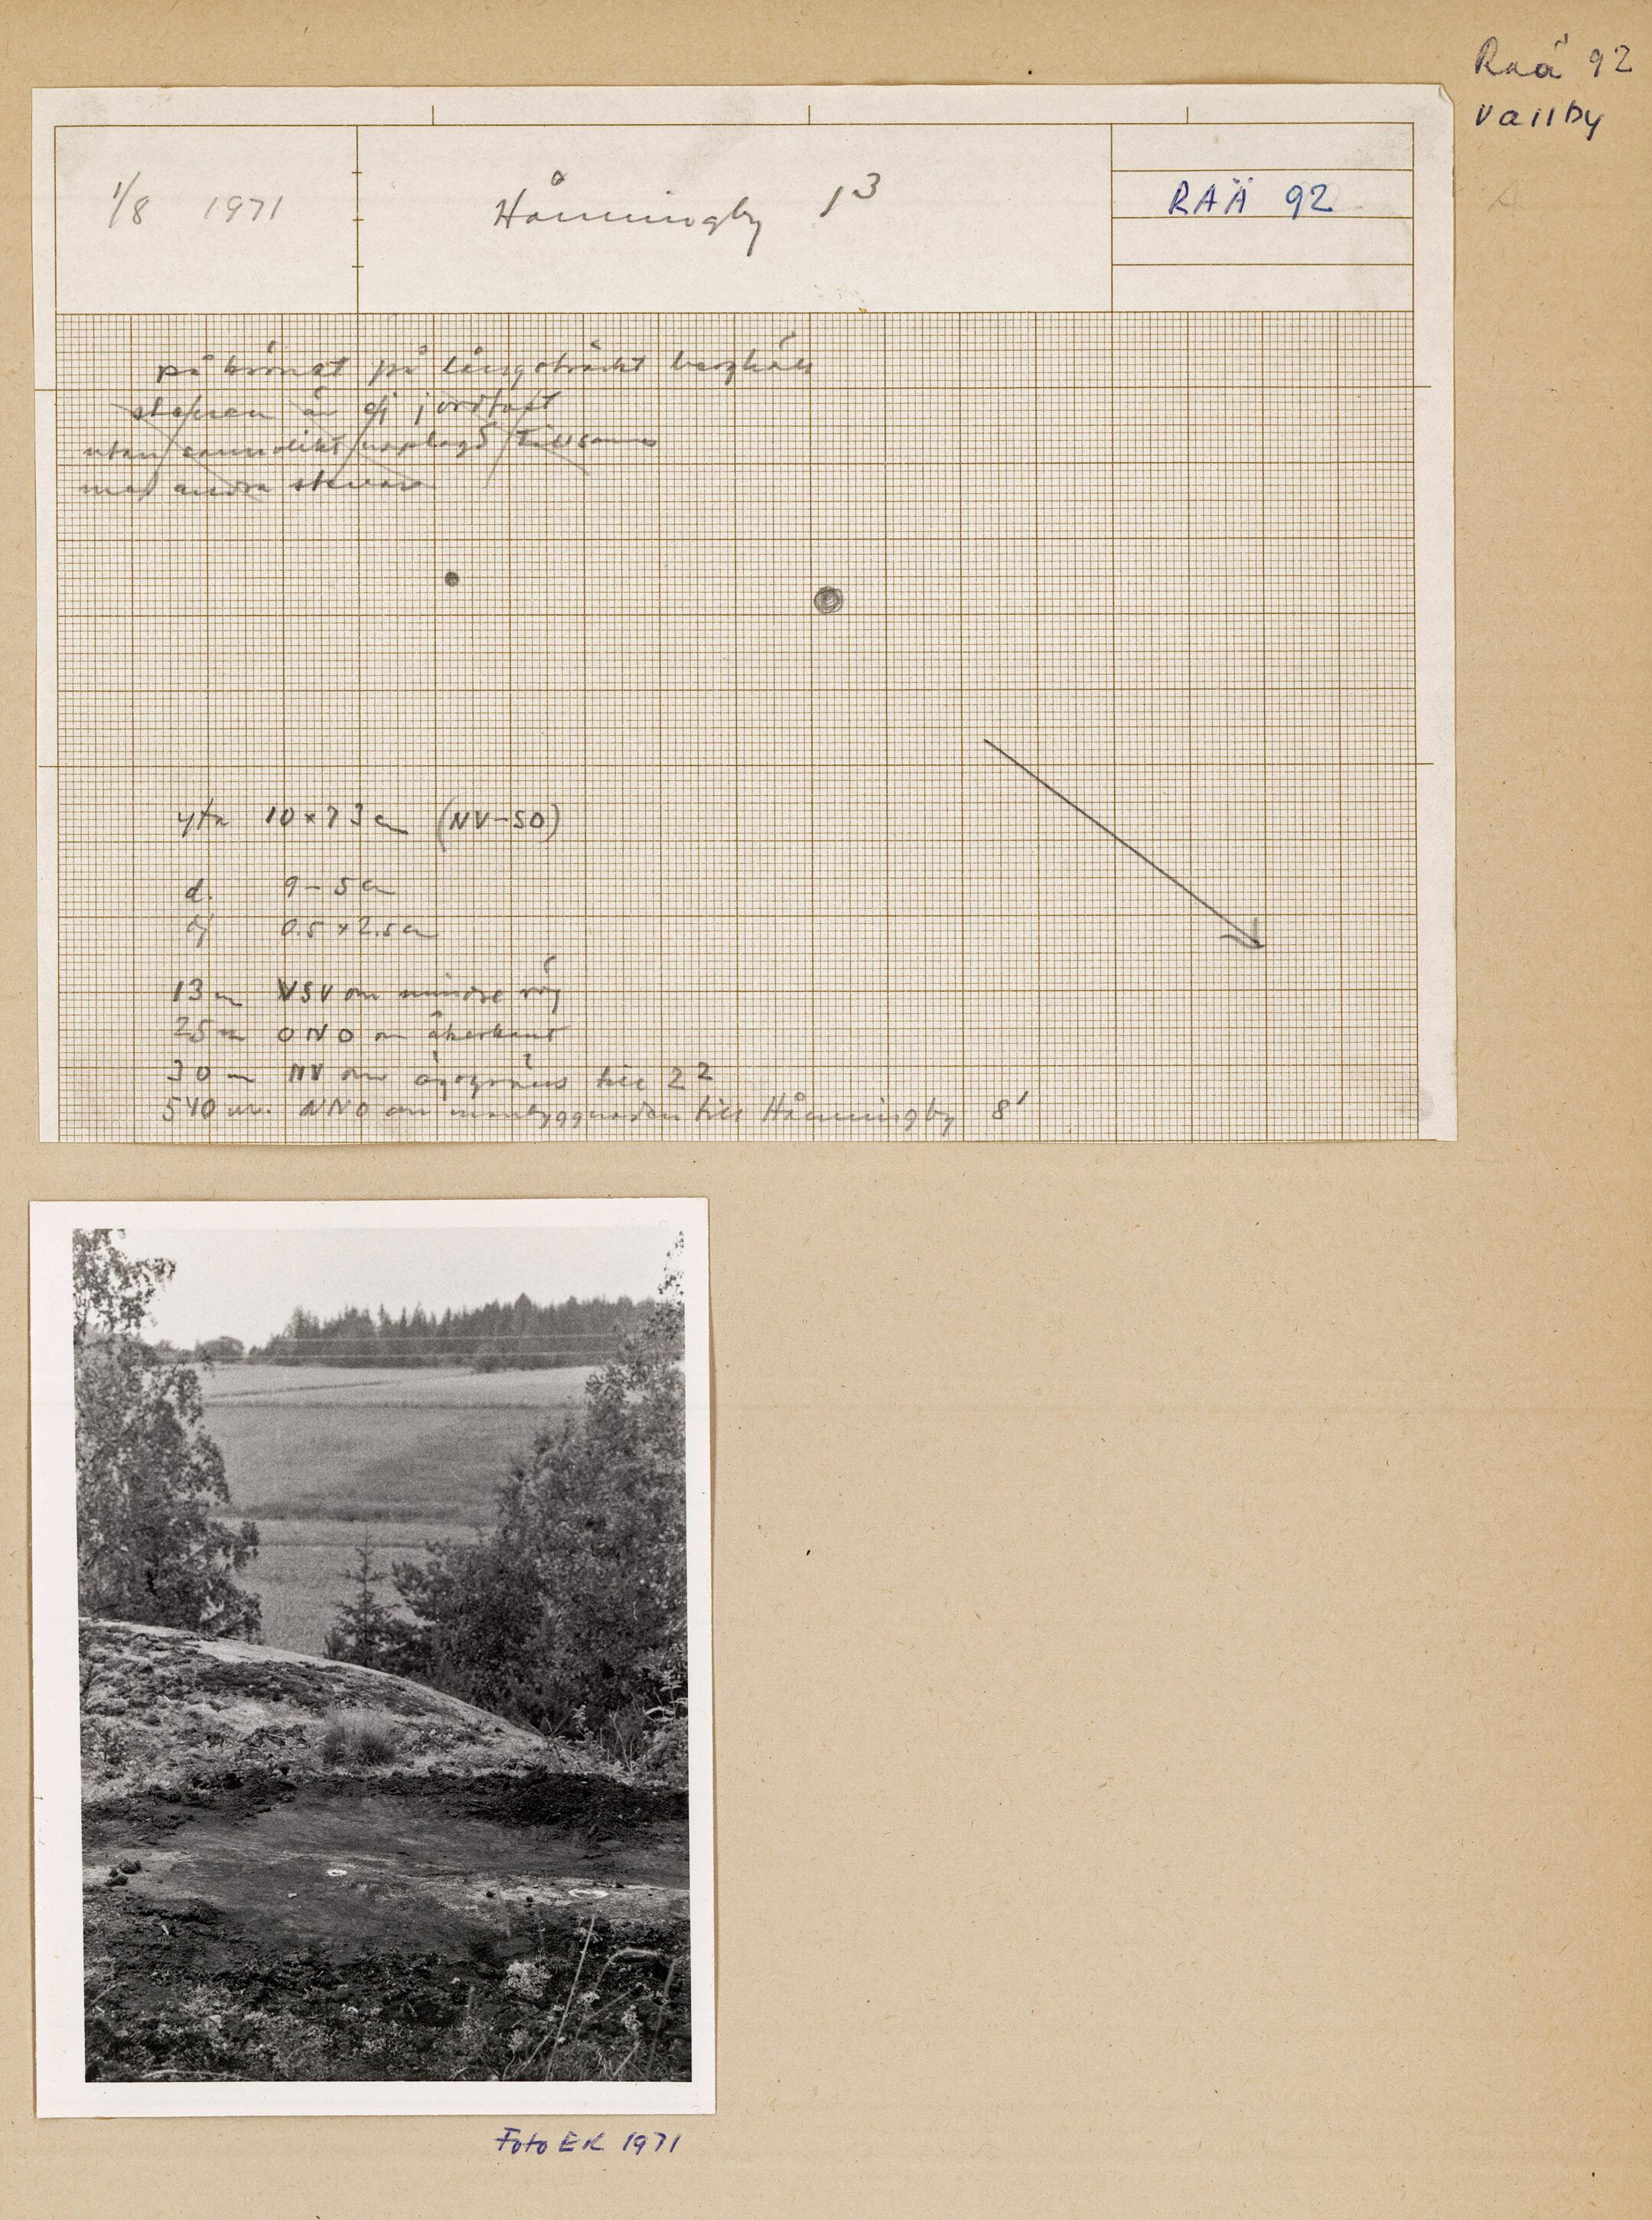 Raä 92
Vallby
1/8 1971
Hånningby 1³
RAÄ 92
på krönet på långsträckt berghäll
stenen är ej jordfast
utan sannolikt upplagd tillsamm
med andra stenar
yta 10×73 cm (NV-SO)
d. 9-5 cm
dj 0.5 × 2.5 cm
13 m VSV om mindre väg
25 m ONO om åkerkant
30 m NV om ägogräns till 2²
540 m. NNO om manbyggnaden till Hånningby 8¹
Foto EK 1971